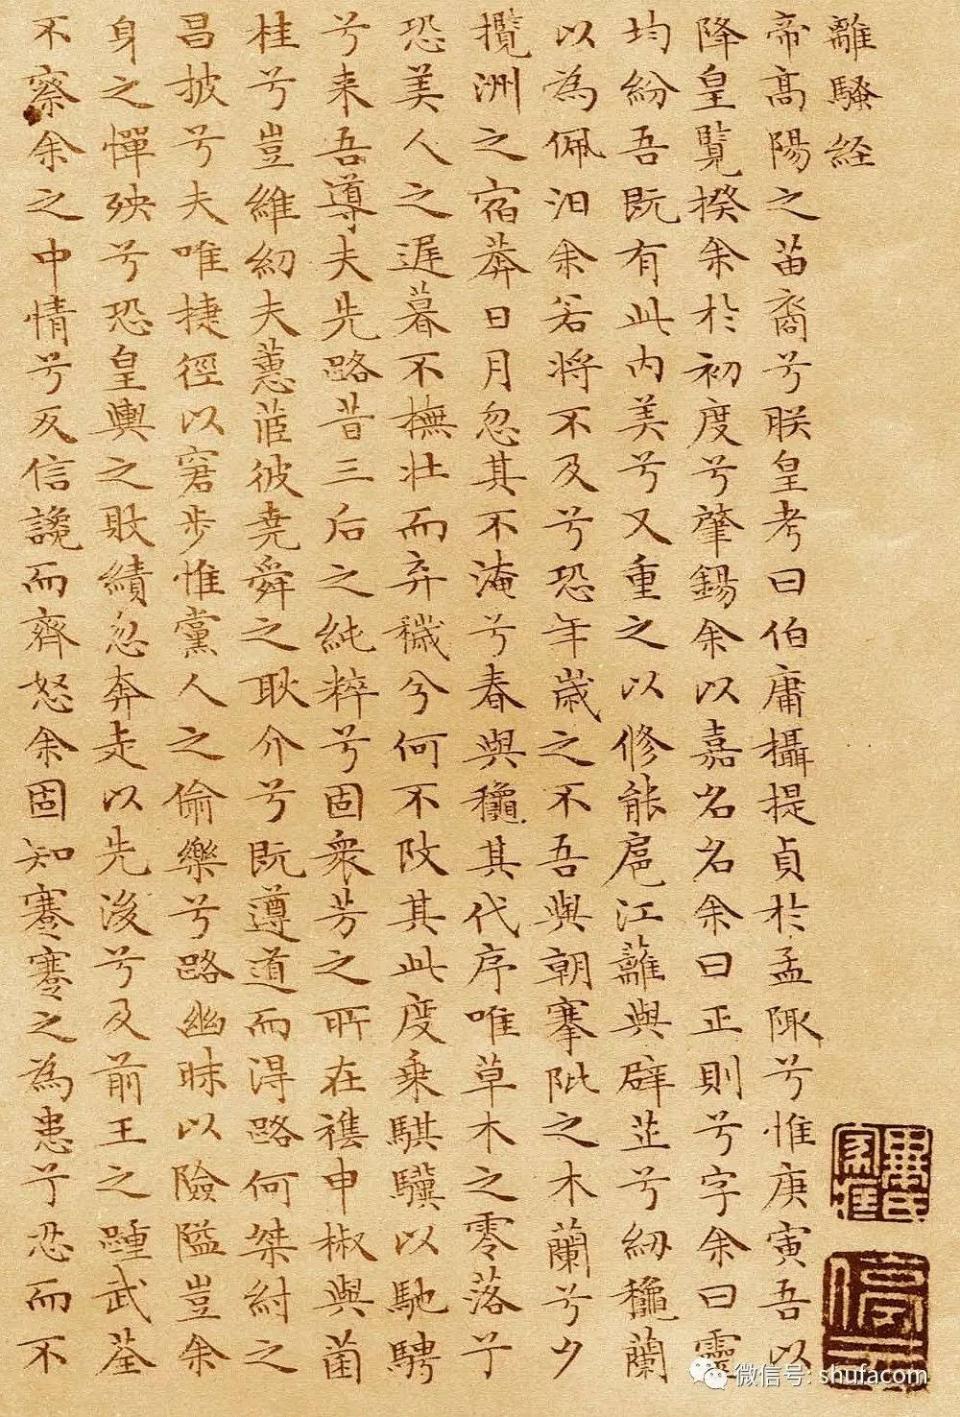 離騷経
帝高陽之苗裔兮朕皇考曰伯庸攝提貞於孟陬兮惟庚寅吾以
降皇覽揆余於初度兮肇錫余以嘉名名余曰正則兮字余曰靈
均紛吾既有此内美兮又重之以修能扈江蘺與辟芷兮紉穐蘭
以為佩汩余若将不及兮恐年歲之不吾與朝搴阰之木蘭兮夕
攬洲之宿莽日月忽其不淹兮春與穐其代序唯草木之零落兮
恐美人之遲暮不撫壮而弃穢兮何不改其此度乗騏驥以馳騁
兮来吾導夫先路昔三后之純粹兮固衆芳之所在襍申椒與菌
桂兮豈維紉夫蕙茝彼堯舜之耿介兮既遵道而得路何桀紂之
昌披兮夫唯捷徑以窘步惟黨人之偷樂兮路幽昧以險隘豈余
身之憚殃兮恐皇輿之敗績忽奔走以先後兮及前王之踵武荃
不察余之中情兮反信讒而齊怒余固知蹇蹇之為患兮忍而不
微信号: shufacom